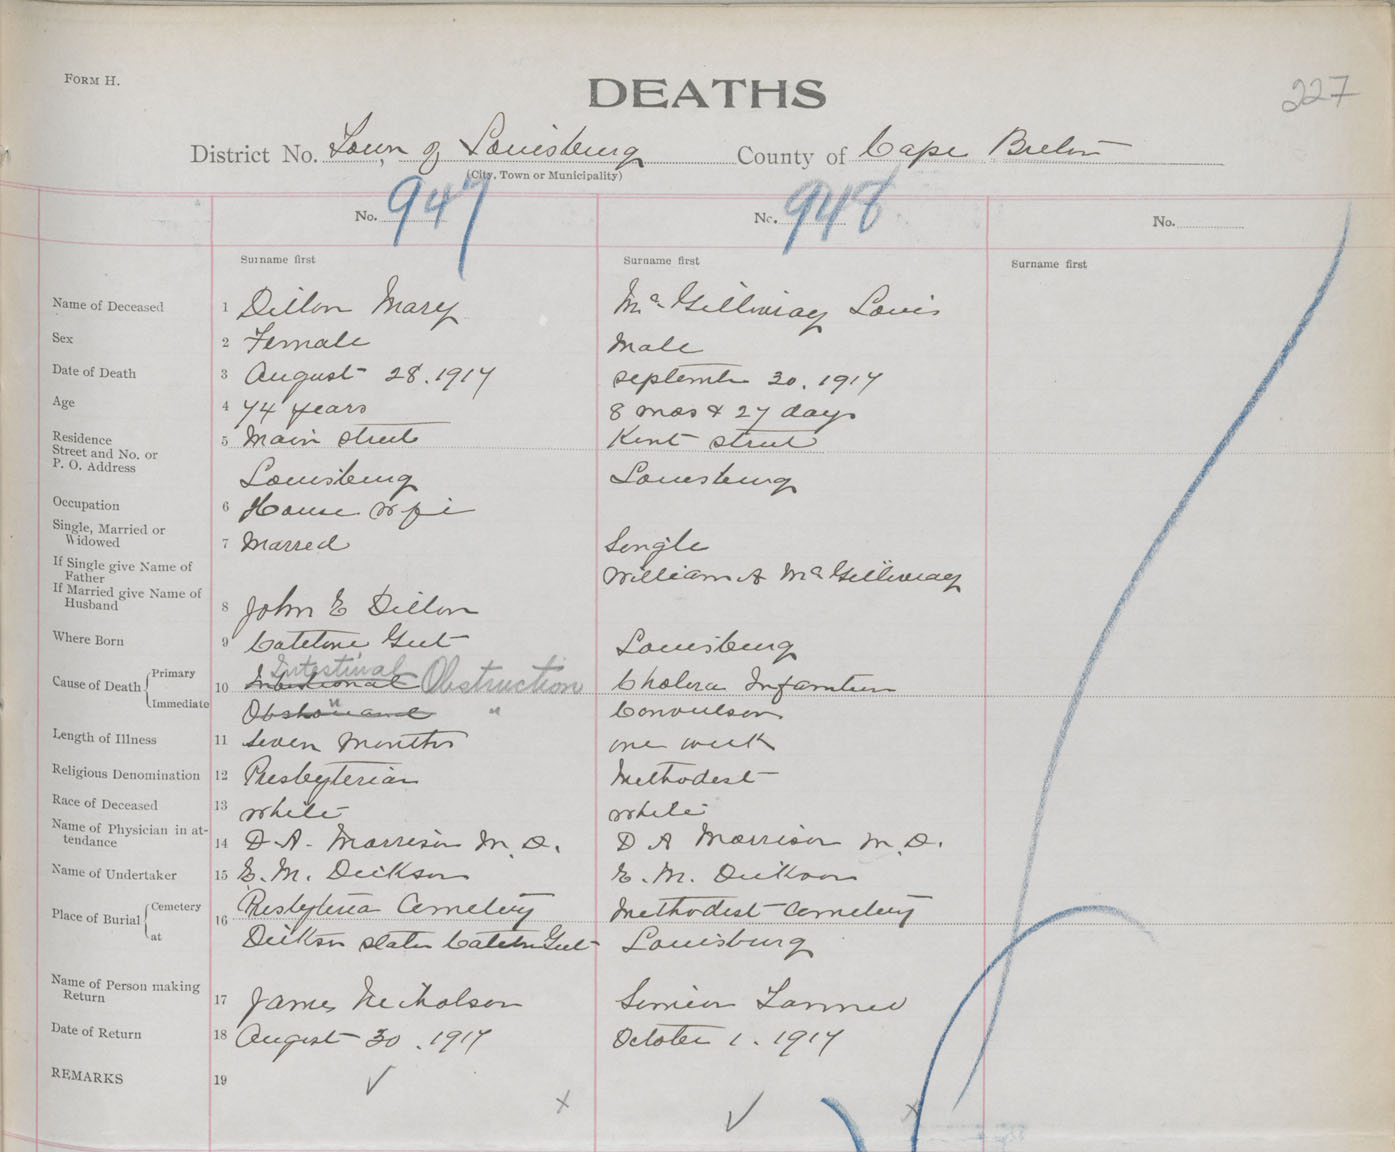 FORM H.
DEATHS
227
District No. Town of Louisburg County of Cape Breton
(City, Town or Municipality)
No. 947 No. 948 No.
Surname first Surname first Surname first
Name of Deceased 1 Dillon Mary McGillivray Louis
Sex 2 Female Male
Date of Death 3 August 28. 1917 September 30. 1917
Age 4 74 years 8 mos & 27 days
Residence
Street and No. or
P. O. Address
5 Main street Kent street
Louisburg Louisburg
Occupation 6 House wife
Single, Married or
Widowed
7 Marred Single
If Single give Name of
Father
William A McGillivray
If Married give Name of
Husband
8 John E Dillon
Where Born 9 Catelone Gut Louisburg
Cause of Death Primary Immediate
10 Intestinal Obstruction Cholera Infantum
" " Convulson
Length of Illness 11 Seven Months one week
Religious Denomination 12 Presbyterian Methodest
Race of Deceased 13 white white
Name of Physician in at-
tendance
14 D. A. Morrison M. D. D A Morrison M. D.
Name of Undertaker 15 E. M. Dickson E. M. Dickson
Place of Burial Cemetery at
16 Presbyteria Cemetery Methodest Cemetery
Dickson Catelone Gut Louisburg
Name of Person making
Return
17 James Nicholson
Date of Return 18 August 30. 1917 October 1. 1917
REMARKS 19